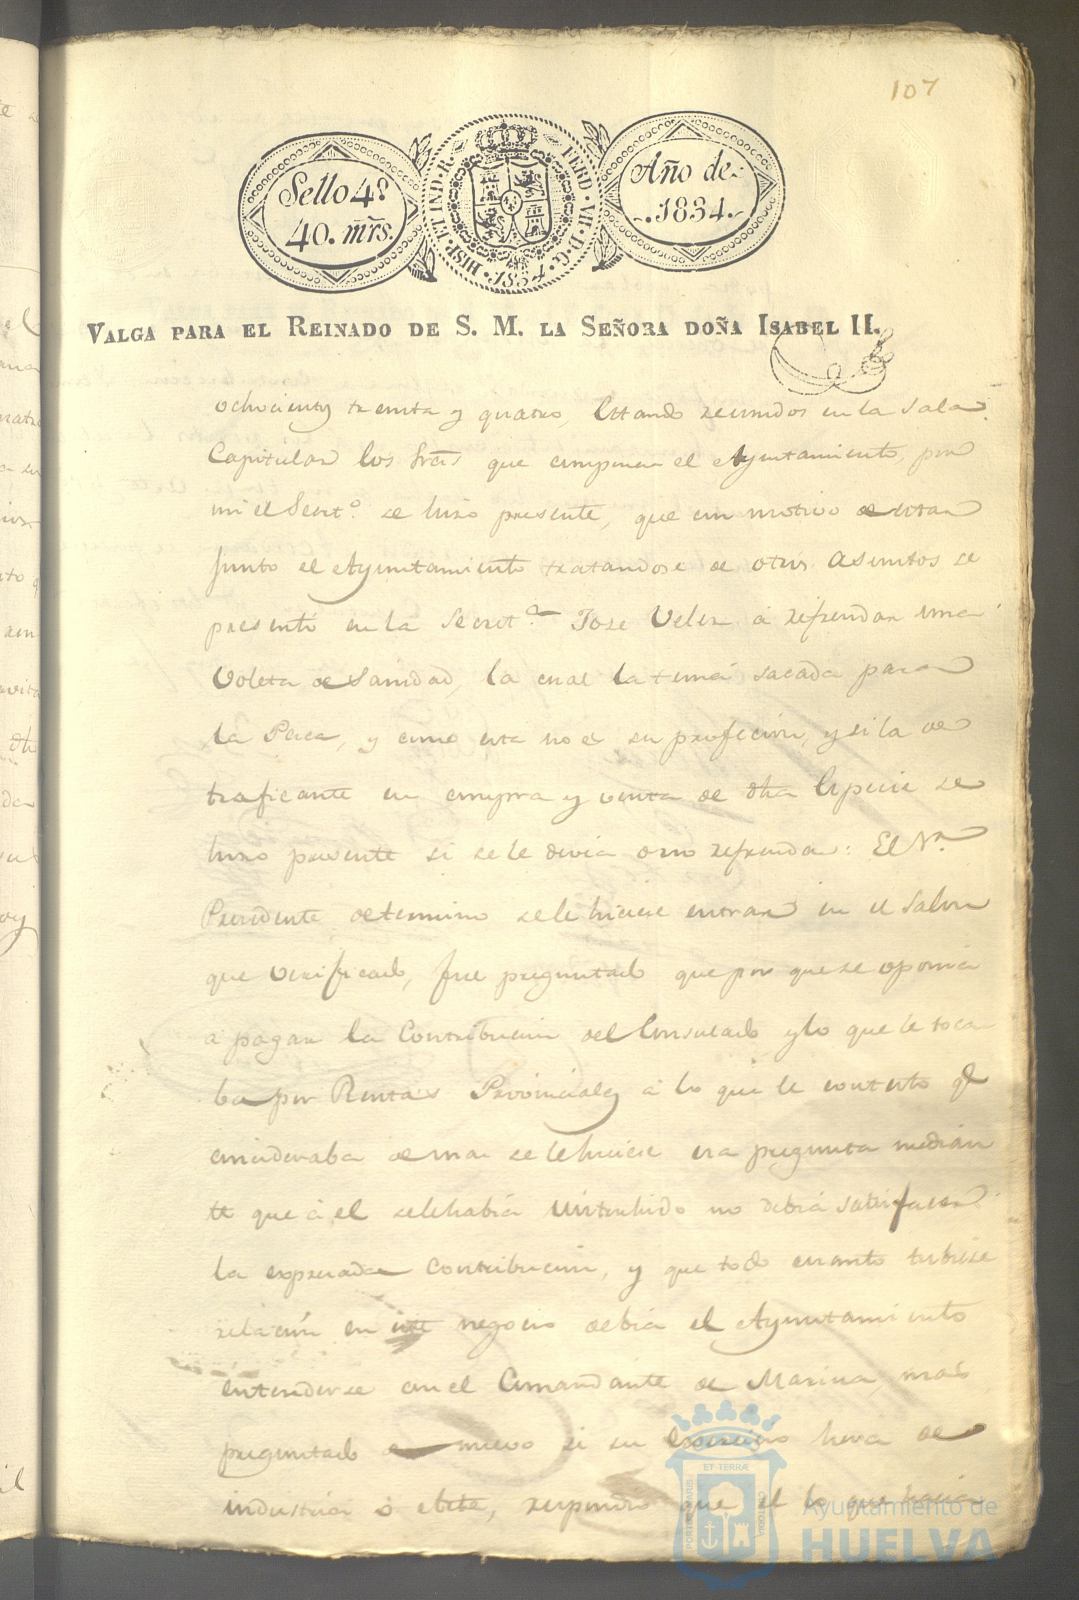 107
Sello 4º
40. mrs.
HISP. ET IND. R. FERD. VII. D. G. 1834.
Año de
1834.
VALGA PARA EL REINADO DE S. M. LA SEÑORA DOÑA ISABEL II.
ochocientos treinta y quatro, Estando reunidos en la Sala
Capitular los Sres que componen el Ayuntamiento, por
mi el Secretº se hizo presente, que con motivo de estar
Junto el Ayuntamiento tratandose de otros asuntos se
presentó en la Secretª Jose Velez a refrendar una
Voleta de Sanidad, la cual la tenia sacada para
la Pesca, y como esta no es su profecion, y si la de
traficante en compra y venta de dha Especie se
hizo presente si se le devia o no refrendar: El Sr.
Presidente determino se le hiciese entrar en el Salon
que verificado, fue preguntado que por que se oponia
a pagar la Contribucion del Consulado y lo que le toca
ba por Rentas Provinciales a lo que le contesto q
consideraba de mas se le hiciese esa pregunta median
te que a el se le habia no debia satisfacer
la expresada Contribucion, y que todo cuanto tubiese
relacion en este negocio debia el Ayuntamiento
entenderse con el Comandante de Marina, mas
preguntado de nuevo si su Exercicio hera de
industria ó este, respondio que el lo que hacia
PORTUS MARIS ET TERRÆ CUSTODIA
Ayuntamiento de
HUELVA